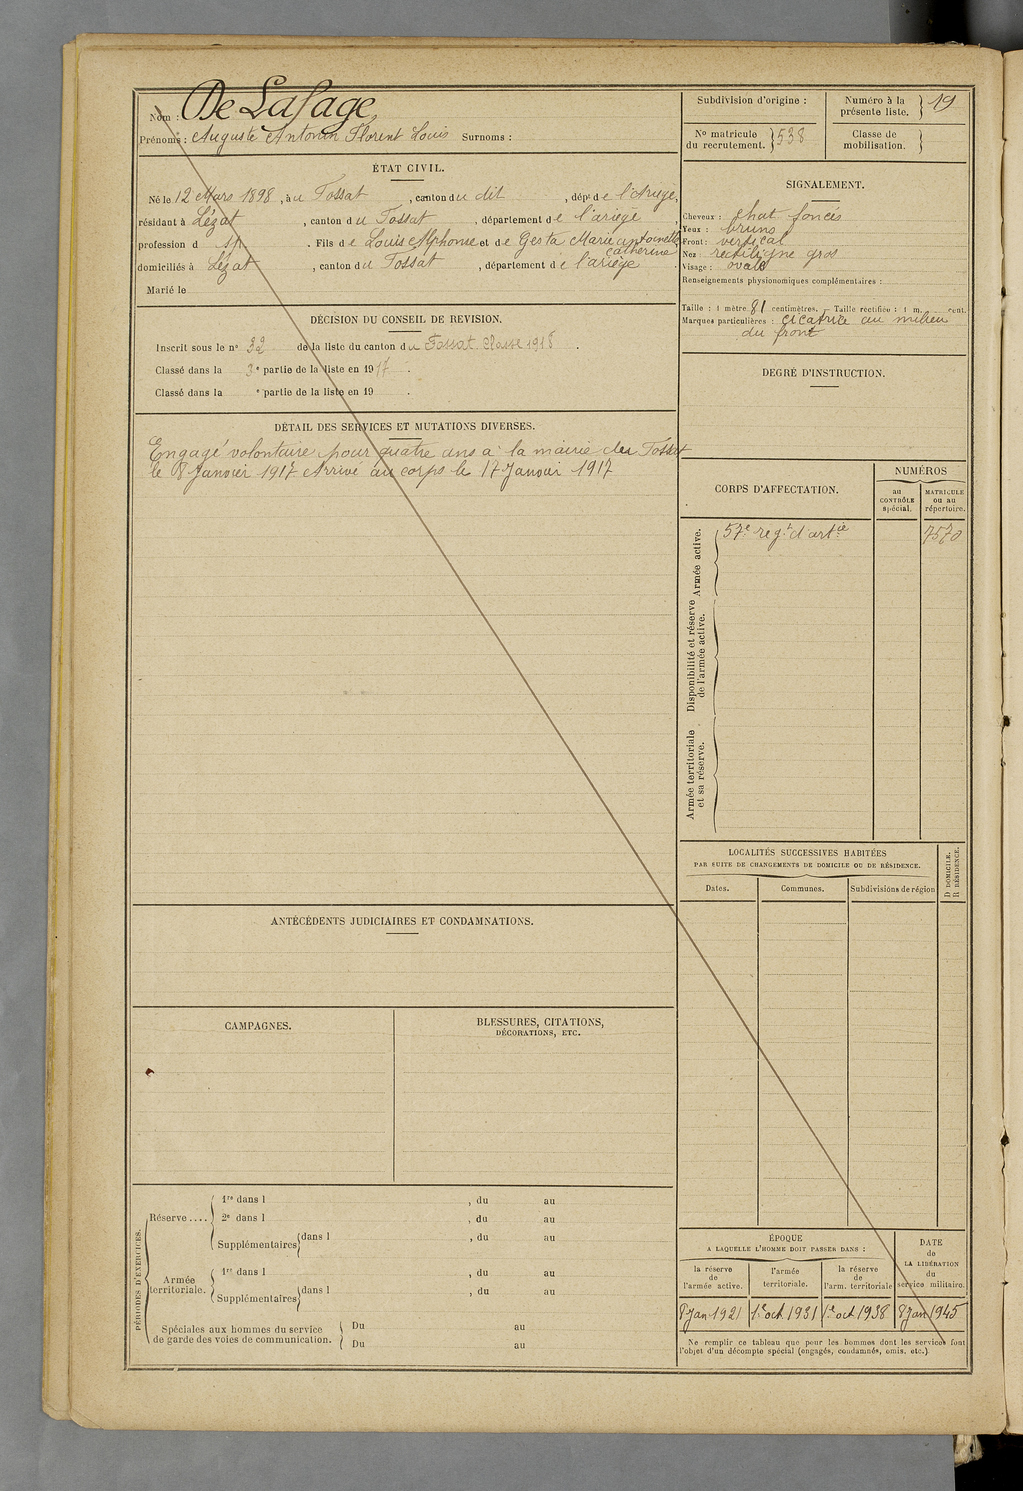 Nom : De Lafage
Prénoms : Auguste Antonin Florent Louis Surnoms :
ÉTAT CIVIL.
Né le 12 Mars 1898, à u Fossat, canton du dit, dépt de l'Ariège,
résidant à Lézat, canton du Fossat, département de l'ariège
profession d sp. Fils de Louis Alphonse et de Gesta Marie antoinette
catherine
domiciliés à Lézat, canton du Fossat, département de l'ariège.
Marié le
DÉCISION DU CONSEIL DE REVISION.
Inscrit sous le n° 32 de la liste du canton du Fossat Classe 1918.
Classé dans la 3e partie de la liste en 1917.
Classé dans la e partie de la liste en 19 .
DÉTAIL DES SERVICES ET MUTATIONS DIVERSES.
Engagé volontaire pour quatre ans à la mairie du Fossat
le 8 Janvier 1917 Arrivé au corps le 17 Janvier 1917
ANTÉCÉDENTS JUDICIAIRES ET CONDAMNATIONS.
CAMPAGNES.
BLESSURES, CITATIONS,
DÉCORATIONS, ETC.
PÉRIODES D'EXERCICES.
Réserve ....
1re dans l , du au
2e dans l , du au
Supplémentaires dans l , du au
Armée
territoriale.
1re dans l , du au
Supplémentaires dans l , du au
Spéciales aux hommes du service
de garde des voies de communication.
Du au
Du au
Subdivision d'origine :
Numéro à la
présente liste. 19
N° matricule
du recrutement. 538
Classe de
mobilisation.
SIGNALEMENT.
Cheveux : chat foncés
Yeux : bruns
Front : vertical
Nez : rectiligne gros
Visage : ovale
Renseignements physionomiques complémentaires :
Taille : 1 mètre 81 centimètres. Taille rectifiée : 1 m. cent.
Marques particulières : cicatrice au milieu
du front
DEGRÉ D'INSTRUCTION.
CORPS D'AFFECTATION.
NUMÉROS
au
CONTRÔLE
spécial.
MATRICULE
ou au
répertoire.
Armée active.
57e regt d'artie
7570
Disponibilité et réserve
de l'armée active.
Armée territoriale
et sa réserve.
LOCALITÉS SUCCESSIVES HABITÉES
PAR SUITE DE CHANGEMENTS DE DOMICILE OU DE RÉSIDENCE.
D DOMICILE.
R RÉSIDENCE.
Dates. Communes. Subdivisions de région
ÉPOQUE
A LAQUELLE L'HOMME DOIT PASSER DANS :
DATE
de
LA LIBÉRATION
du
service militaire.
la réserve
de
l'armée active.
l'armée
territoriale.
la réserve
de
l'arm. territoriale
8 Jan 1921 1er oct 1931 1er oct 1938 8 Jan 1945
Ne remplir ce tableau que pour les hommes dont les services font
l'objet d'un décompte spécial (engagés, condamnés, omis, etc.).